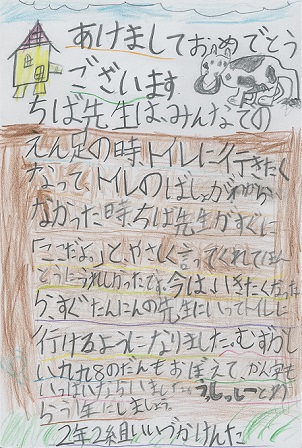 あけましておめでとう
ございます。
ちば先生は、みんなでの
えん足の時、トイレに行きたく
なって、トイレのばしょがわから
なかった時、ちば先生がすぐに
「ここだよ。」と、やさしく言ってくれてほん
とうにうれしかったです。今は、いきたくなった
ら、すぐたんにんの先生にいってトイレに
行けるようになりました。むずかし
い九九8のだんもおぼえて、かん字も
いっぱいならいました。うっしっしーとわ
らう年にしましょう。
2年2組いいづかけんた